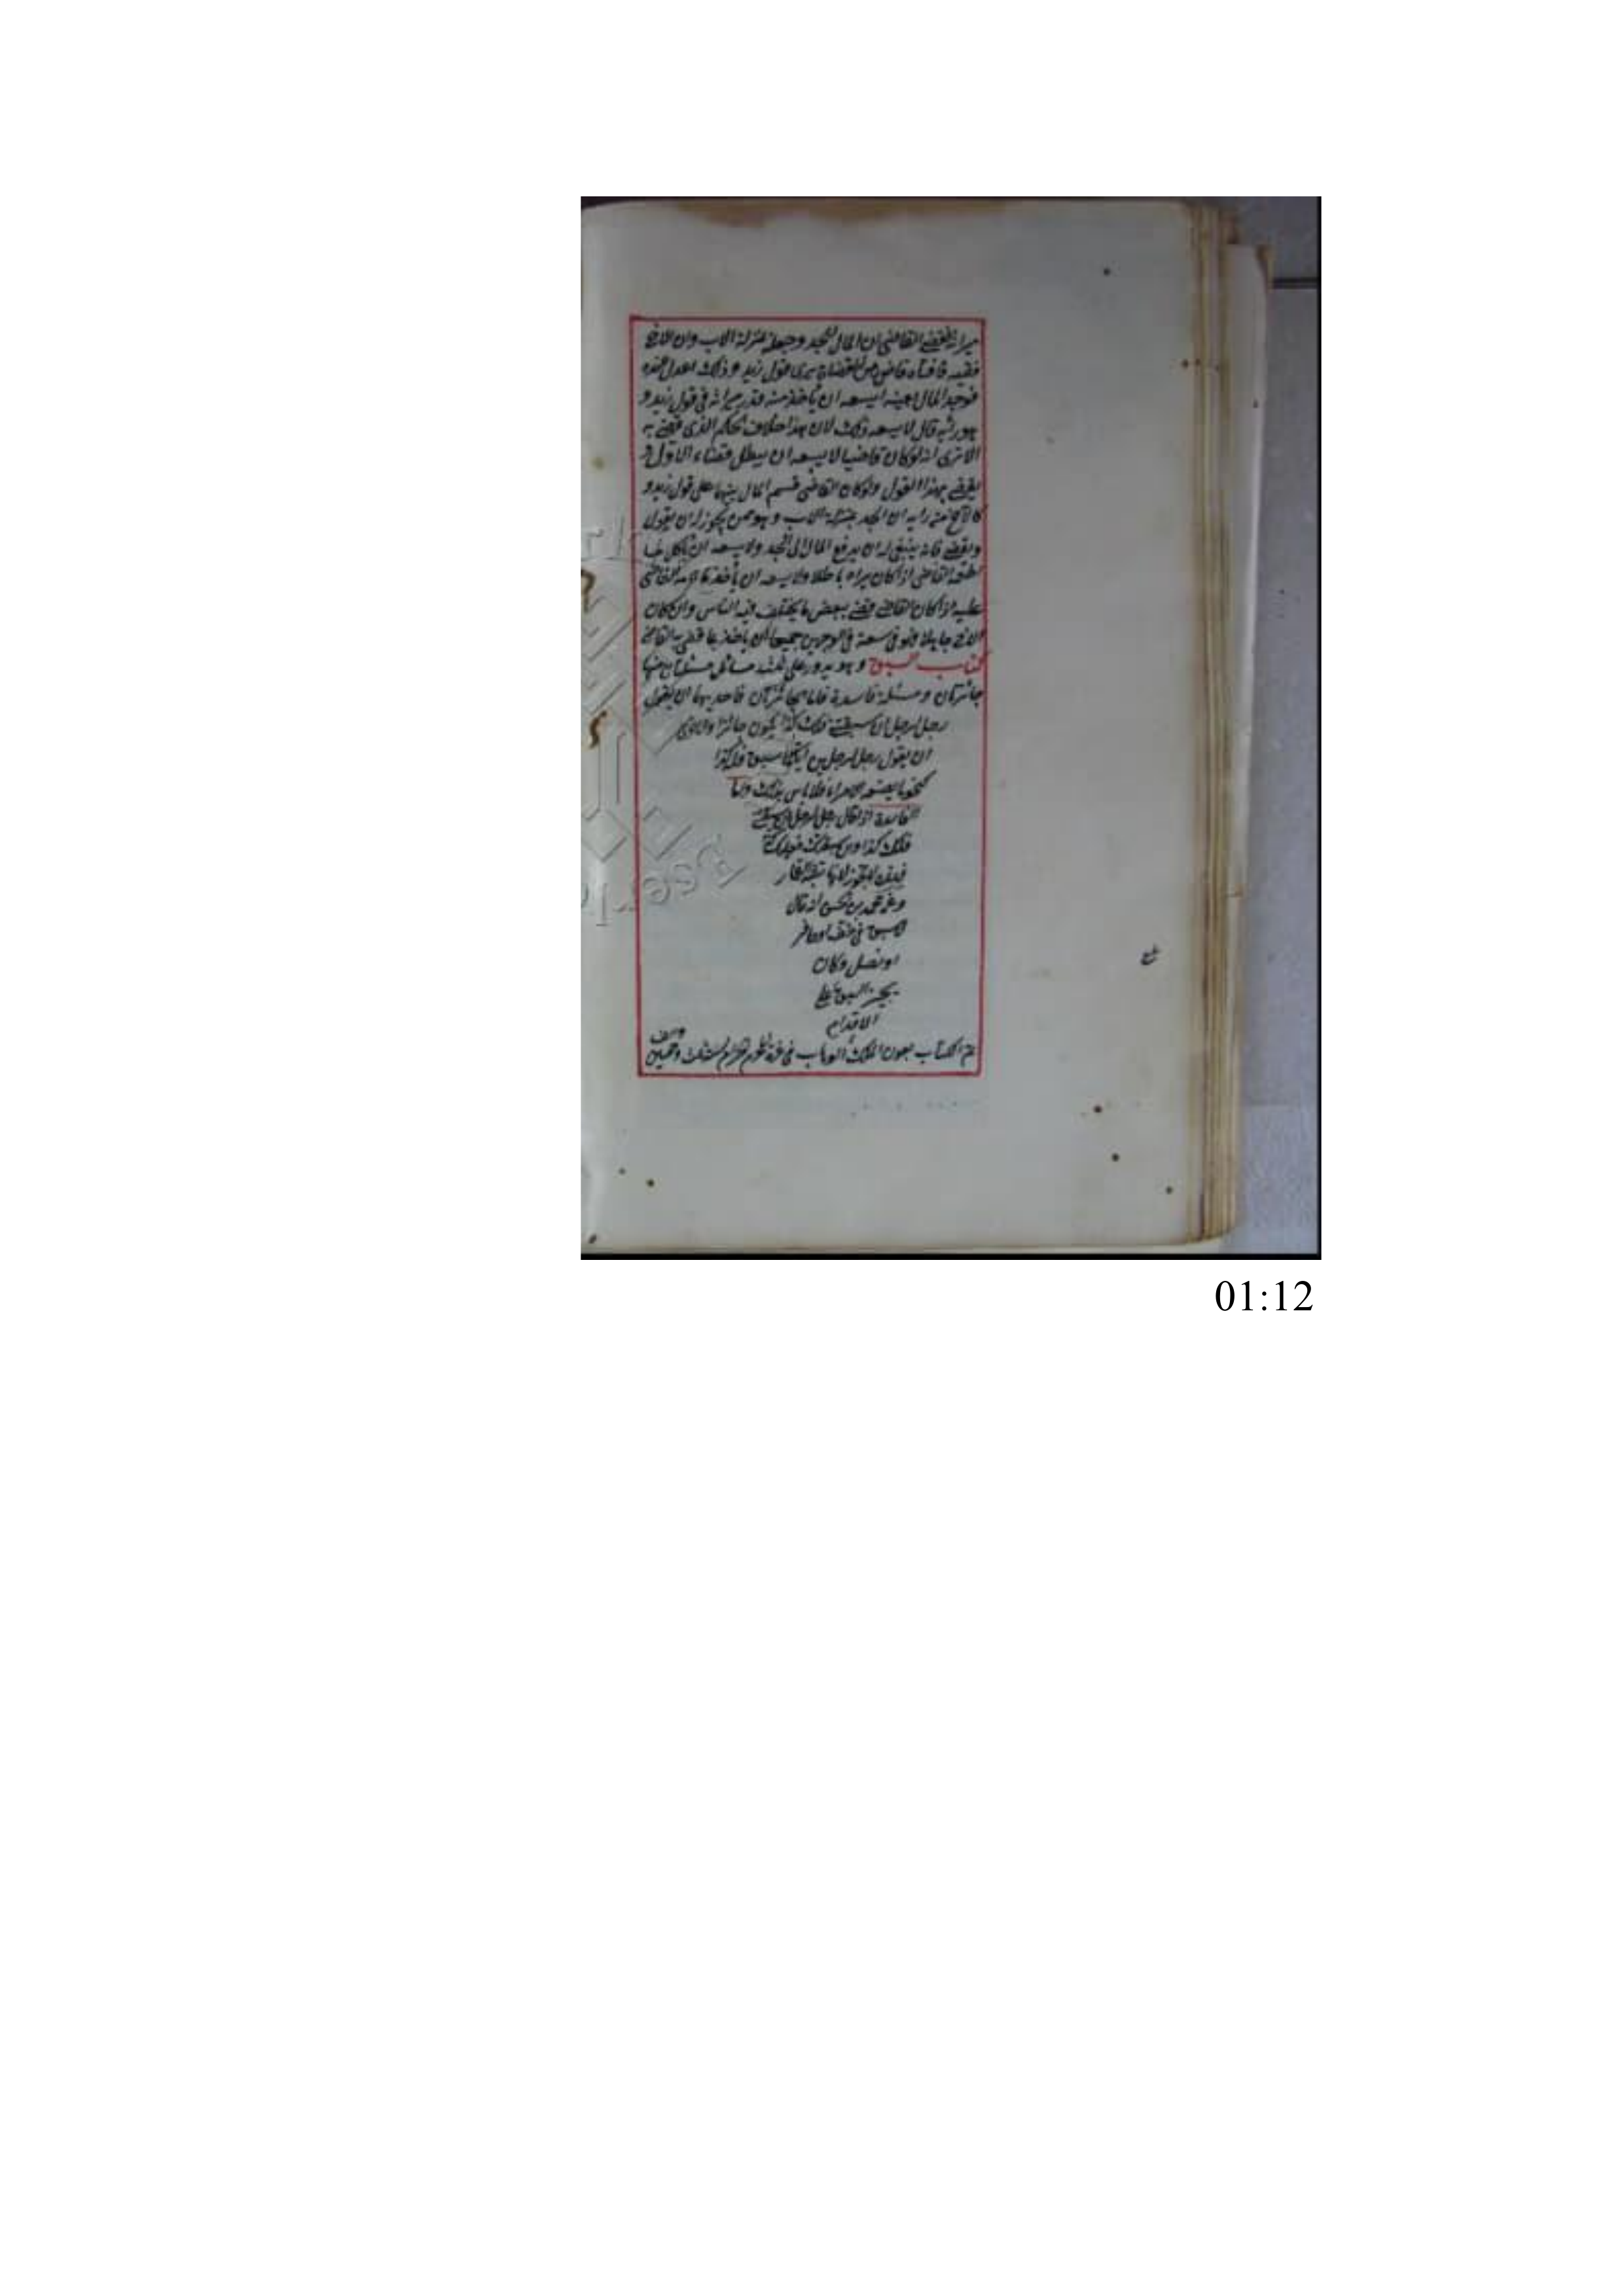 ميراثه فقضى القاضي ان المال للجد وجعله بمنزلة الاب وان الاخ
فقيه فافتاه قاض من القضاة يرى قول زيد وذلك اعدل عنده
فوجد المال بعينه ايسعه ان ياخذ منه قدر ميراثه في قول زيد و
هو رثه قال لا يسعه ذلك لان هذا خلاف الحكم الذي قضى به
الا ترى انه لو كان قاضيا لا يسعه ان يبطل قضاء الاول و
يقضي بهذا القول ولو كان القاضي قسم المال بينهما على قول زيد و
كالاخ من رايه ان الجد بمنزلة الاب وهو ممن يجوز له ان يقول
ويقضي فانه ينبغي له ان يدفع المال الى الجد ولا يسعه ان ياكل
القاضي اذا كان يراه باطلا ولا يسعه ان ياخذ القاضي
عليه اذا كان القاضي قضى ببعض ما يختلف فيه الناس وان كان
الاخ جاهلا فهو في سعة في الوجهين جميعا ان ياخذ بما قضى به القاضي
كتاب السبق وهو يدور على ثلث مسائل مسئلتان منها
جائزتان ومسئلة فاسدة فاما الجائزتان فاحديهما ان يقول
رجل لرجل ان سبقتني فلك كذا يكون جائزا والاخرى
ان يقول رجل لرجلين ايكما سبق فله كذا
كنحو ما يصنعه الامراء فلا باس بذلك واما
الفاسدة اذا قال رجل لرجل ان سبقتني
فلك كذا وان سبقتك فعليك
فهذه لا تجوز لانها القمار
وعن محمد بن الحسن انه قال
لا سبق في خف او حافر
او نصل وكان
يجيز السبق على
الاقدام
تم الكتاب بعون الملك الوهاب في غرة المحرم الحرام لسنة ثلث وخمسين
والف
بلغ
01:12